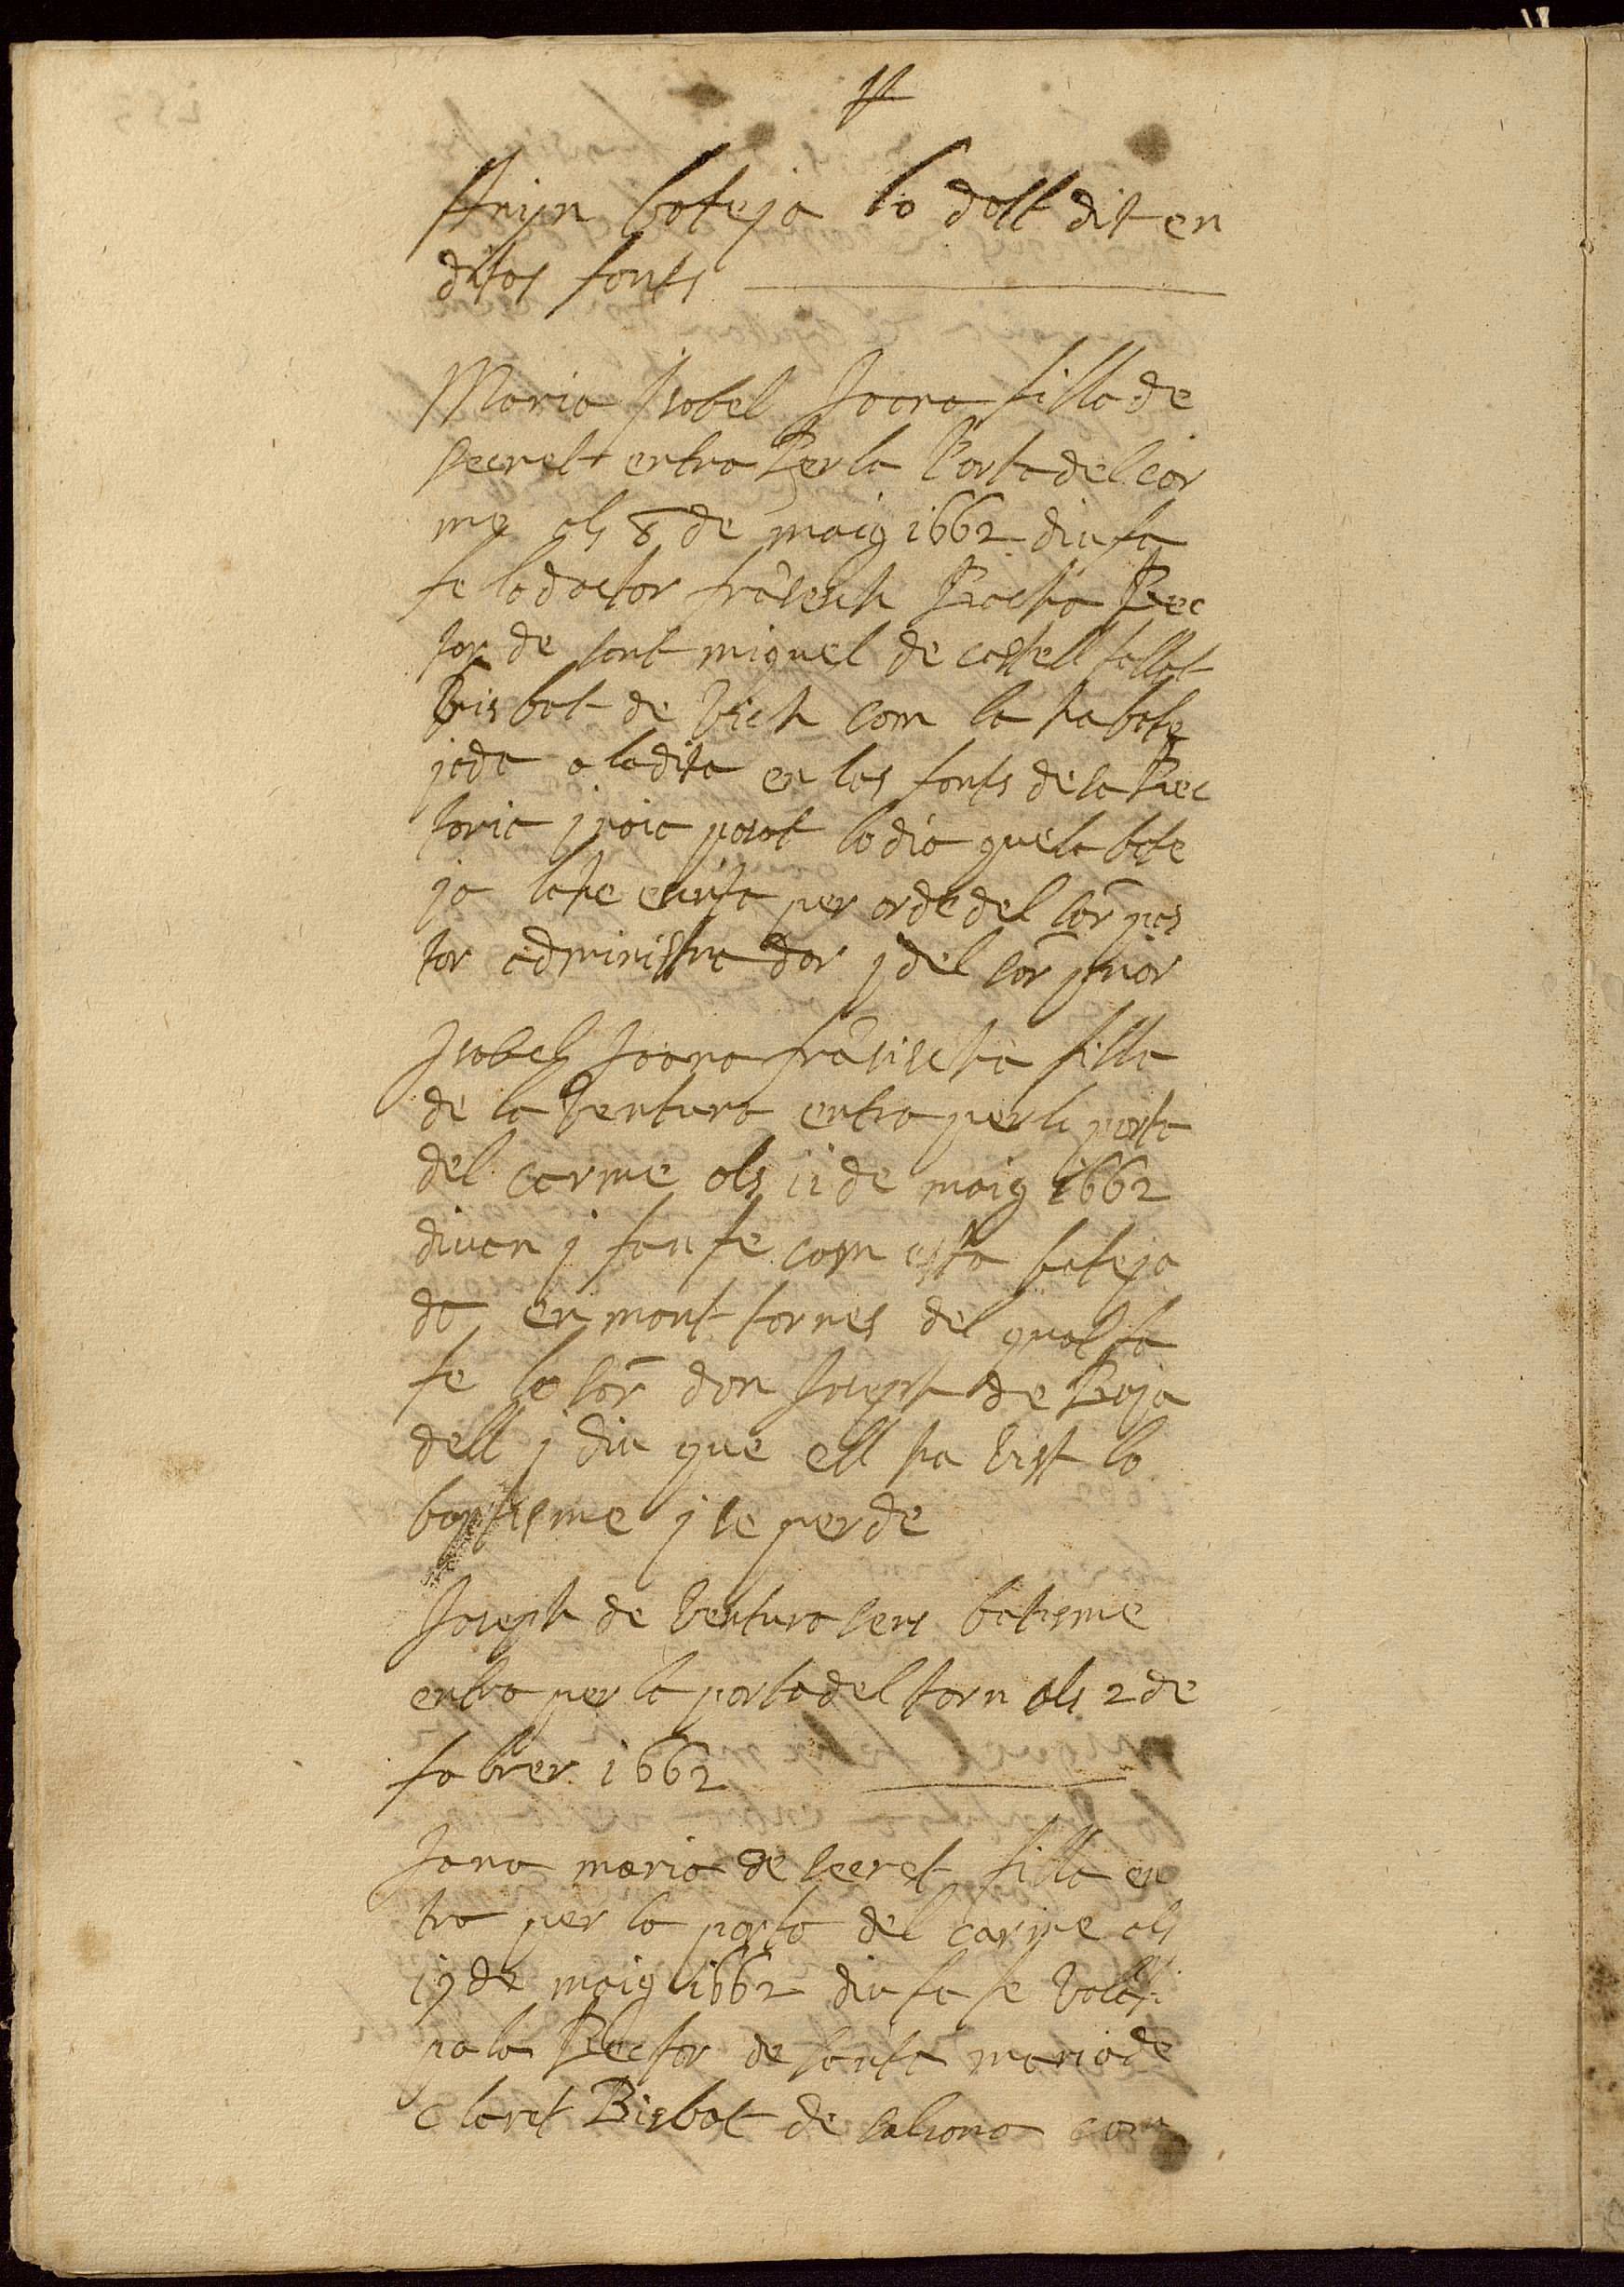 bateja lo dalt dit en
ditas fonts
Maria Isabel Joana filla de
secret entra Per la Porta del Car
me als 8 de maig 1662 diu fa
fe lo doctor frãsesch Rec
tor de sant miquel de castell tallat
Bisbat de Vich com la ha bate
jada a la dita en las fonts de sa Rec
toria j noia posat lo dia que la bate
ja la he escrita per orde del sõr pas
tor administrador j del sõr prior
Isabel Joana frãsischa filla
de la Ventura entra per la porta
del carme als 11 de maig 1662
diuan j fan fe com esta bateja
da en mont tornes del qual fa
fe lo sõr don Joseph de Raja
dell j diu que ell ha vist lo
baptisme j se perde
Joseph de Ventura sens batisme
entra per la porta del torn als 2 de
fabrer 1662
Jana maria de secret filla en
tra per la porta del carme als
17 de maig 1662 diu fa fe
pala Rector de santa maria de
claret Bisbat de salsona com